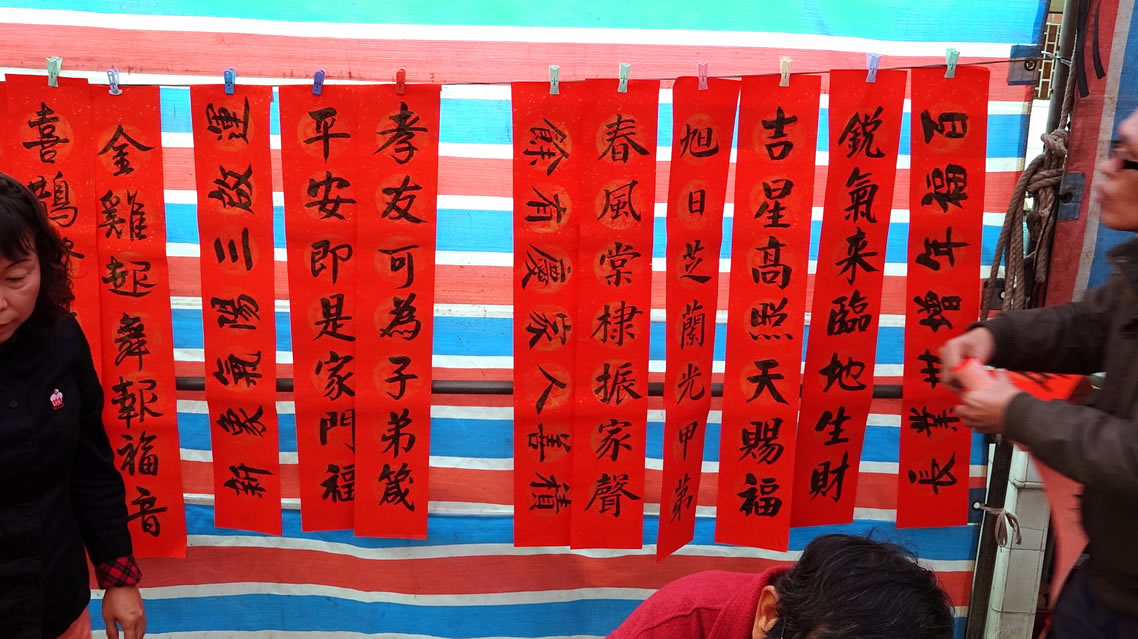 百福年增世業長
銳氣來臨地生財
吉星高照天賜福
旭日芝蘭光甲第
春風棠棣振家聲
餘有慶家人善積
孝友可為子弟箴
平安即是家門福
運啟三陽氣象新
金雞起舞報福音
喜鵲